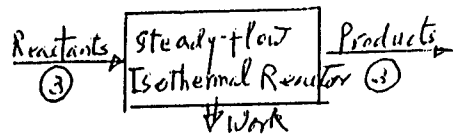 Reactants
③
Steady-flow
Isothermal Reactor
Products
③
Work